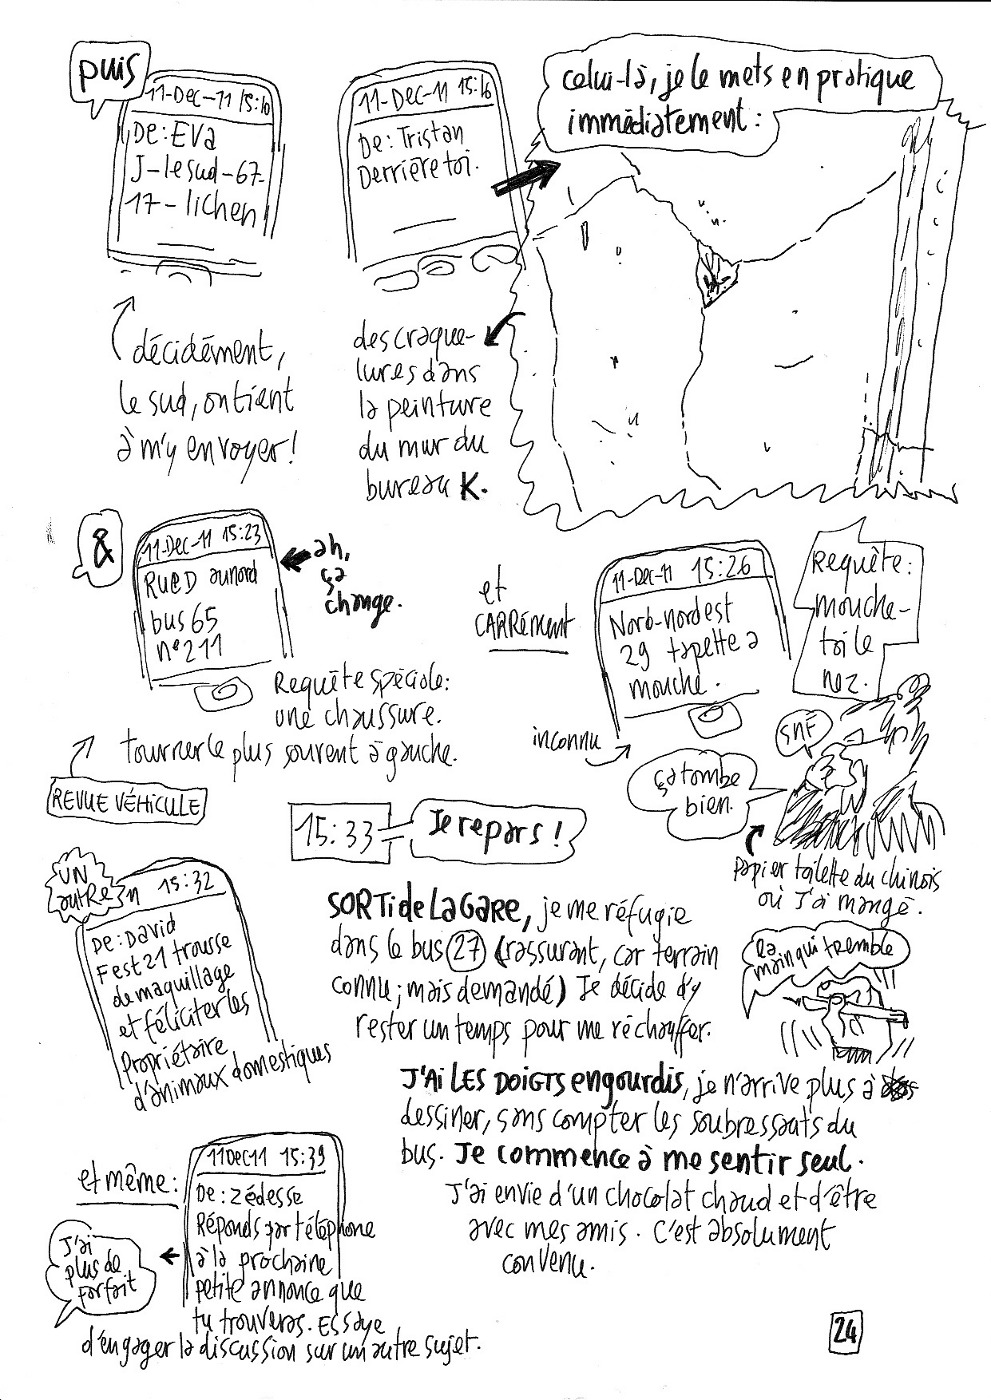 puis
11-Dec-11 15:10
De: Eva
J-le sud-67-
17-lichen
11-Dec-11 15:16
De: Tristan
Derrière toi.
celui-là, je le mets en pratique
immédiatement :
décidément,
le sud, on tient
à m'y envoyer !
des craque-
lures dans
la peinture
du mur du
bureau K.
&
11-Dec-11 15:23
Rue D au nord
bus 65
n° 211
ah,
ça
change.
Requête spéciale:
une chaussure.
tourner le plus souvent à gauche.
REVUE VÉHICULE
et
CARRÉMENT
11-Dec-11 15:26
Nord-nord est
29 tapette à
mouche.
inconnu
Requête:
mouche-
toi le
nez.
SNF
ça tombe
bien.
papier toilette du chinois
où j'ai mangé.
15:33
Je repars !
UN
autre
15:32
De: David
Fest 21 trousse
de maquillage
et féliciter les
Propriétaire
d'animaux domestiques
SORTi de LA GARE, je me réfugie
dans le bus 27 (rassurant, car terrain
connu; mais demandé) Je décide d'y
rester un temps pour me réchauffer.
la
main qui tremble
J'Ai LES DOIGTS engourdis, je n'arrive plus à
dessiner, sans compter les soubressauts du
bus. Je commence à me sentir seul.
J'ai envie d'un chocolat chaud et d'être
avec mes amis. C'est absolument
convenu.
et même:
11Dec11 15:39
De: Zédesse
Réponds par téléphone
à la prochaine
petite annonce que
tu trouveras. Essaye
d'engager la discussion sur un autre sujet.
J'ai
plus de
forfait
24